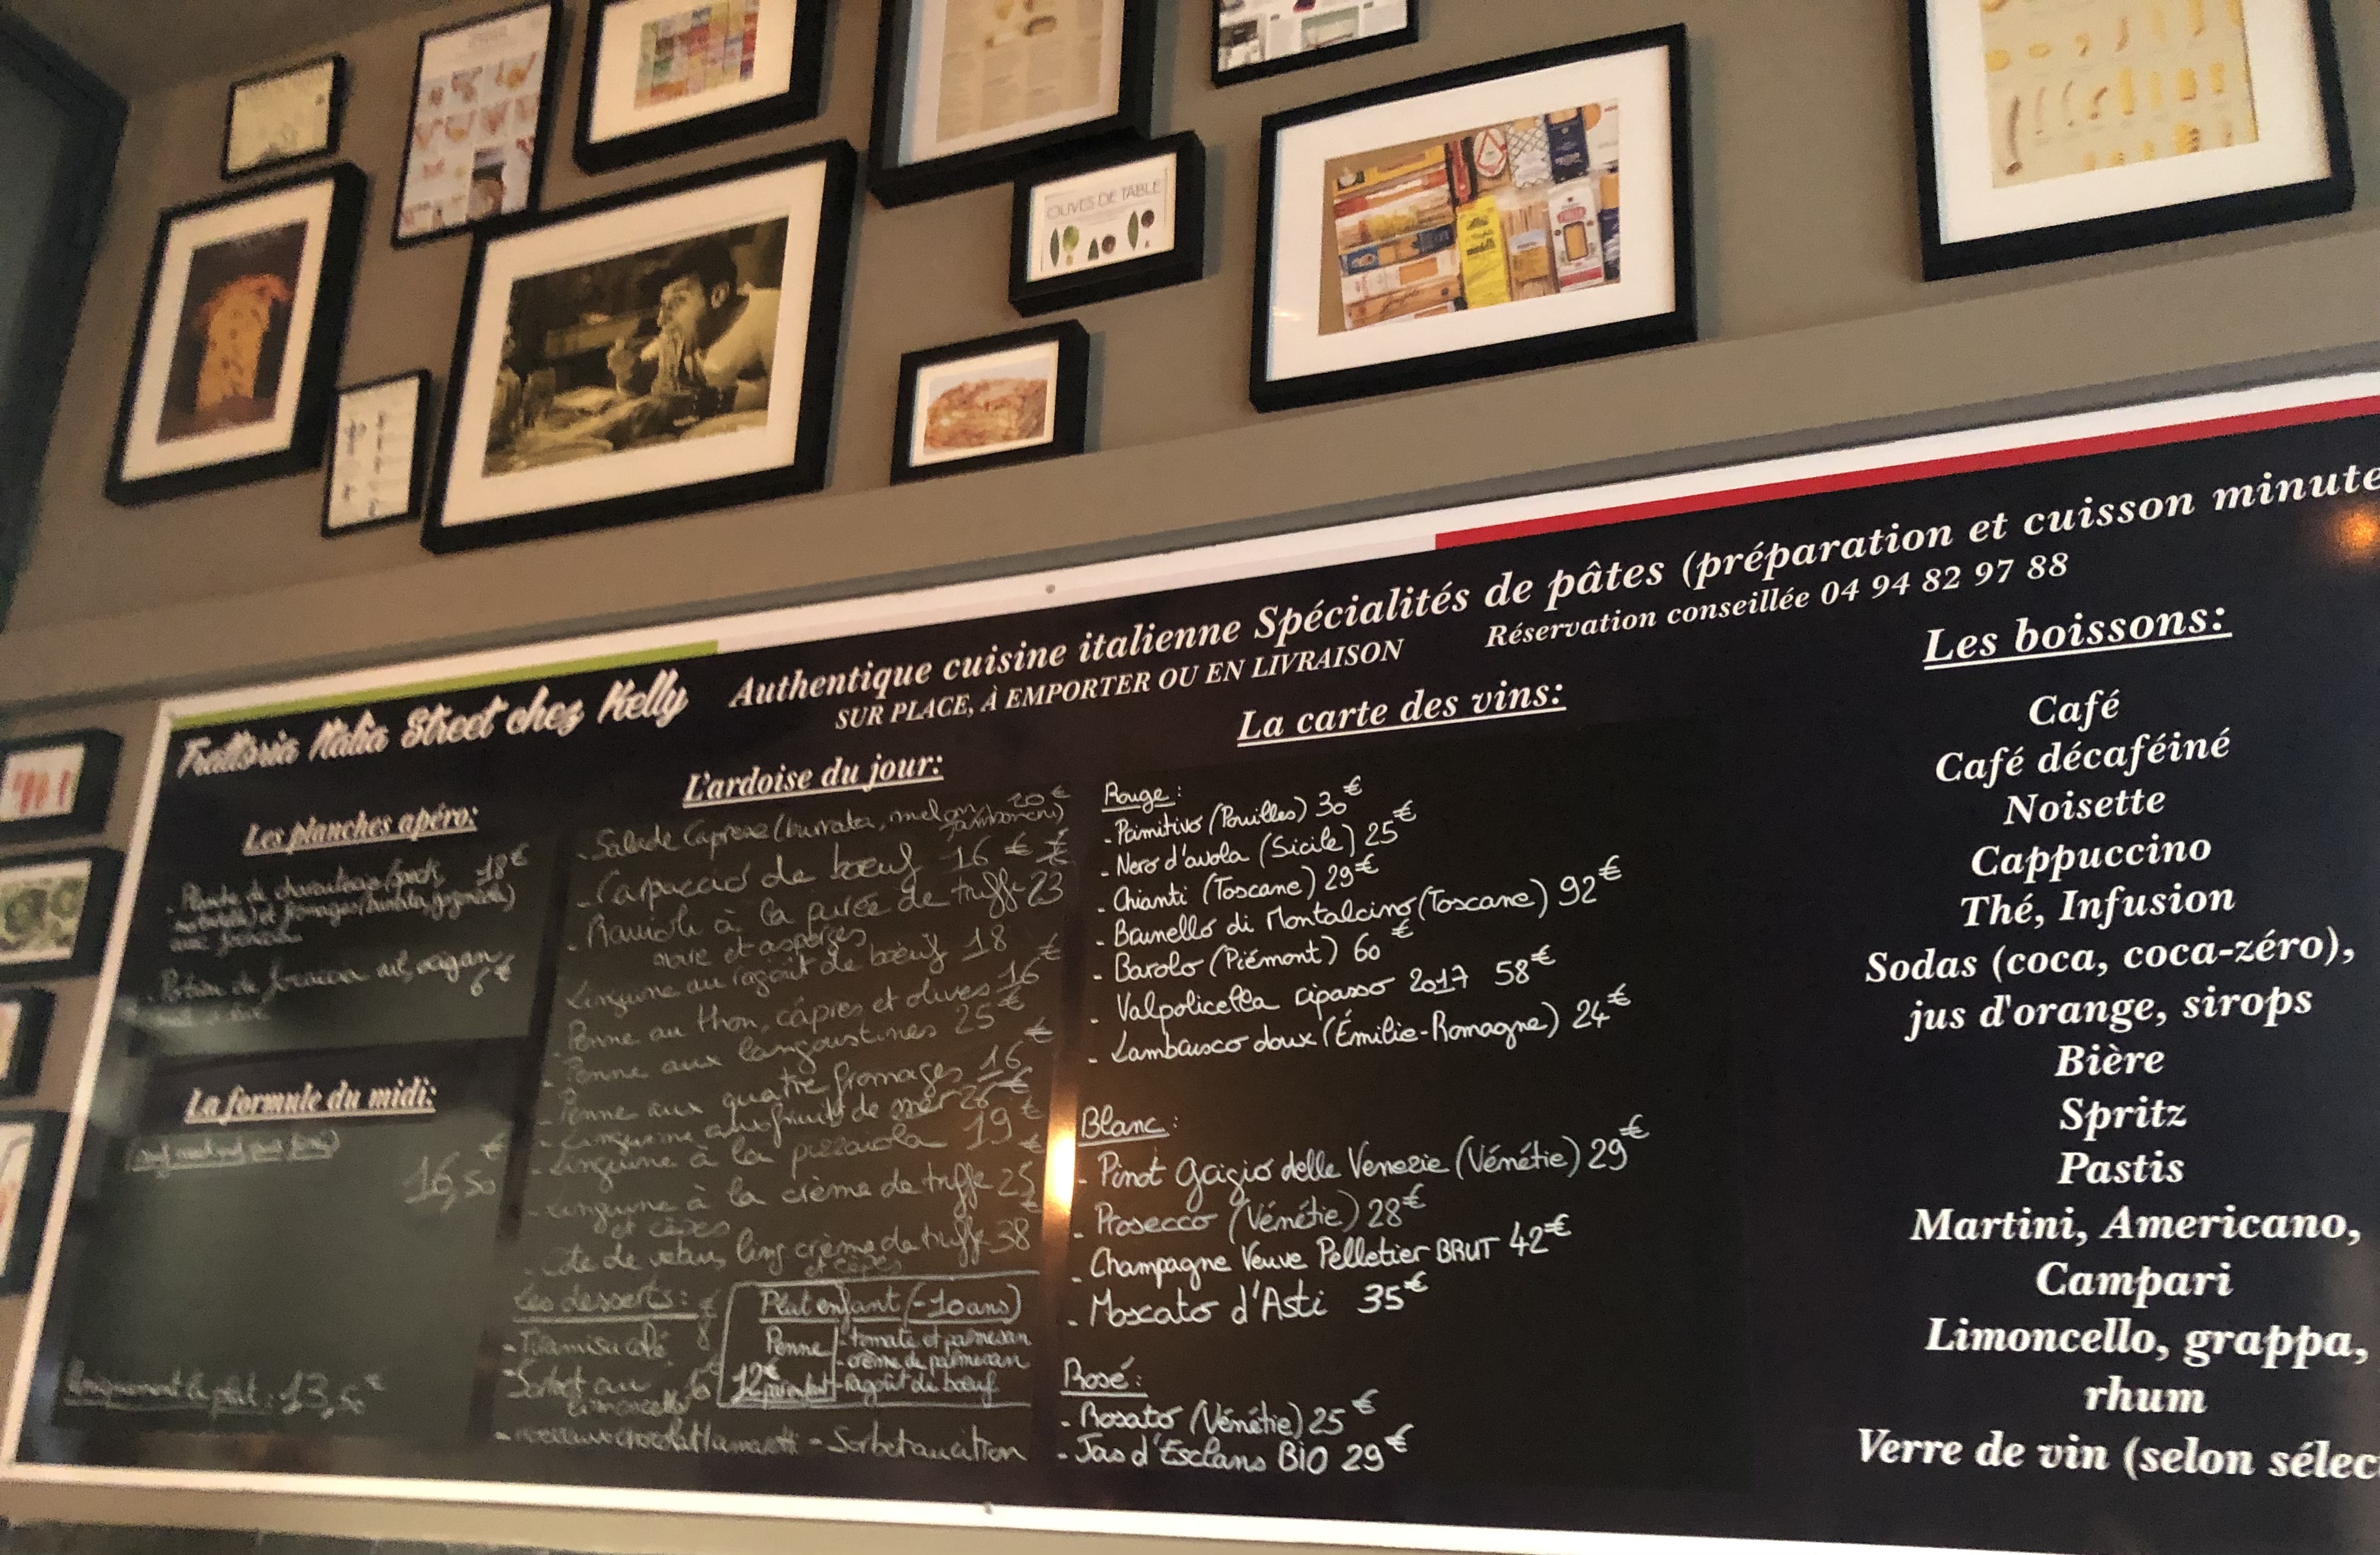 OLIVES DE TABLE
Trattoria Italia Street chez Kelly
Authentique cuisine italienne Spécialités de pâtes (préparation et cuisson minute
SUR PLACE, À EMPORTER OU EN LIVRAISON
Réservation conseillée 04 94 82 97 88
Les planches apéro:
18€
6€
La formule du midi:
16,50€
Uniquement le plat : 13,50€
L'ardoise du jour:
- Salade Caprese (burrata, melon, 20€
jambon cru)
- Carpaccio de bœuf 16€
- Ravioli à la purée de truffe 23€
noire et asperges
- Linguine au ragoût de bœuf 18
- Penne au thon, câpres et olives 16€
- Penne aux langoustines 25€
- Penne aux quatre fromages 16€
- Linguine aux fruits de mer 26€
- Linguine à la pizzaiola 19€
- Linguine à la crème de truffe 25€
et cèpes
- Côte de veau, ling crème de truffe 38€
et cèpes
Les desserts:
- Tiramisu café 8€
- Sorbet au
limoncello
- Sorbet au citron
Plat enfant (-10ans)
Penne - tomate et parmesan
- crème de parmesan
12€ - ragoût de bœuf
La carte des vins:
Rouge:
- Primitivo (Pouilles) 30€
- Nero d'avola (Sicile) 25€
- Chianti (Toscane) 29€
- Brunello di Montalcino (Toscane) 92€
- Barolo (Piémont) 60€
- Valpolicella ripasso 2017 58€
- Lambrusco doux (Émilie-Romagne) 24€
Blanc:
- Pinot grigio delle Venezie (Vénétie) 29€
- Prosecco (Vénétie) 28€
- Champagne Veuve Pelletier BRUT 42€
- Moscato d'Asti 35€
Rosé:
- Rosato (Vénétie) 25€
- Jas d'Esclans BIO 29€
Les boissons:
Café
Café décaféiné
Noisette
Cappuccino
Thé, Infusion
Sodas (coca, coca-zéro),
jus d'orange, sirops
Bière
Spritz
Pastis
Martini, Americano,
Campari
Limoncello, grappa,
rhum
Verre de vin (selon sélec